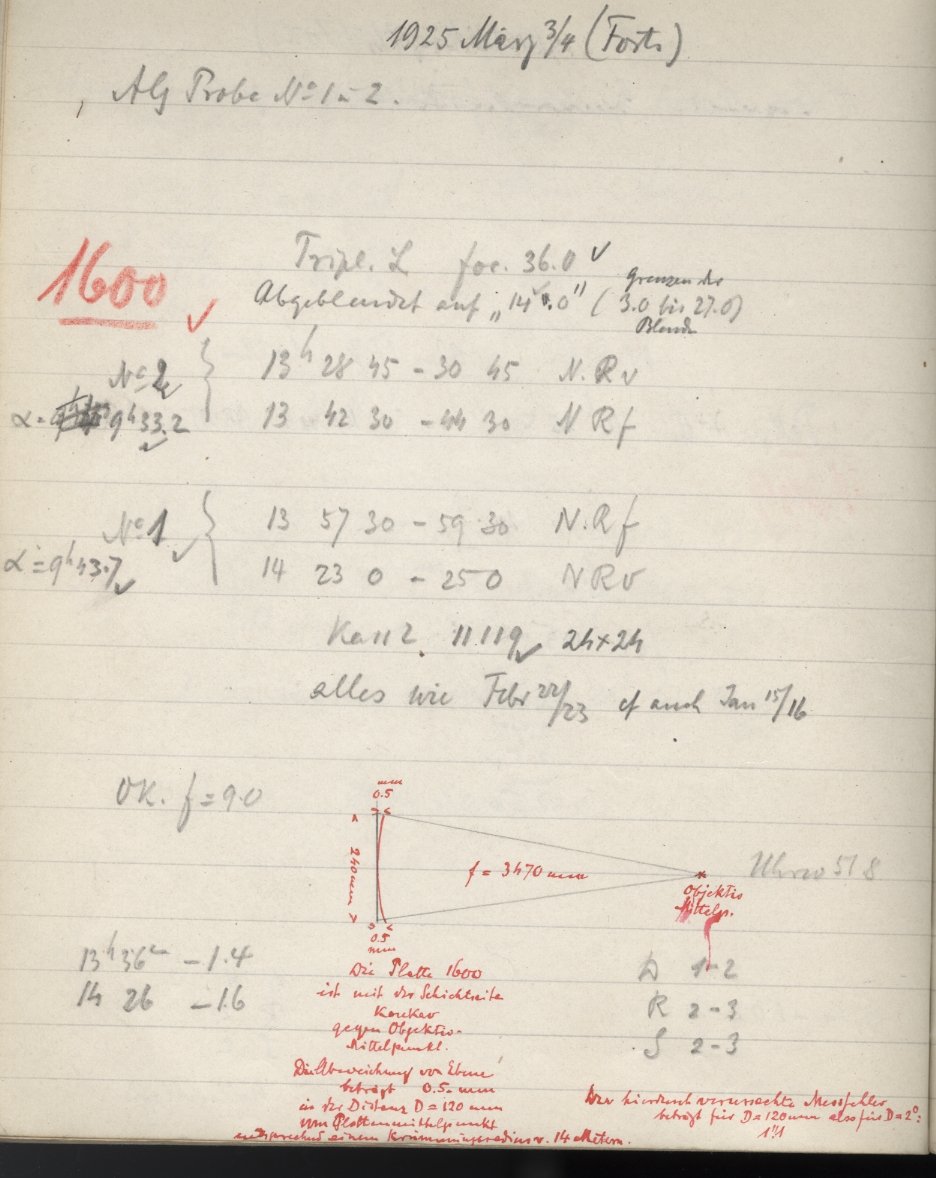 1925 März 3/4 (Forts)
AG Probe No 1 u 2.
Tripl. L foc. 36.0 ✓
1600 ✓
Abgeblendet auf „14.0" (3.0 bis 27.0)
Grenzen der
Blende
No 2 13h 28 45 - 30 45 N. R v
α = 9h33.2 13 42 30 - 44 30 N R f
No 1 13 57 30 - 59 30 N. R f
α = 9h43.7 14 23 0 - 25 0 N R v
Kass 2 24×24
alles wie Febr 22/23 cf auch Jan 15/16
OK. f = 9.0
mm
0.5
240 mm
f = 3470 mm
Objektiv
Mittelp.
Uhren 51 8
0.5
mm
13h 36m -1.4
14 26 -1.6
D 1-2
R 2-3
S 2-3
Die Platte 1600
ist mit der Schichtseite
konkav
gegen Objektiv-
Mittelpunkt.
Die Abweichung von Ebene
beträgt 0.5 mm
in der Distanz D = 120 mm
vom Plattenmittelpunkt
entsprechend einem Krümmungsradius v. 14 Metern.
Der hierdurch verursachte Messfehler
beträgt für D = 120 mm also für D = 2°:
1"1